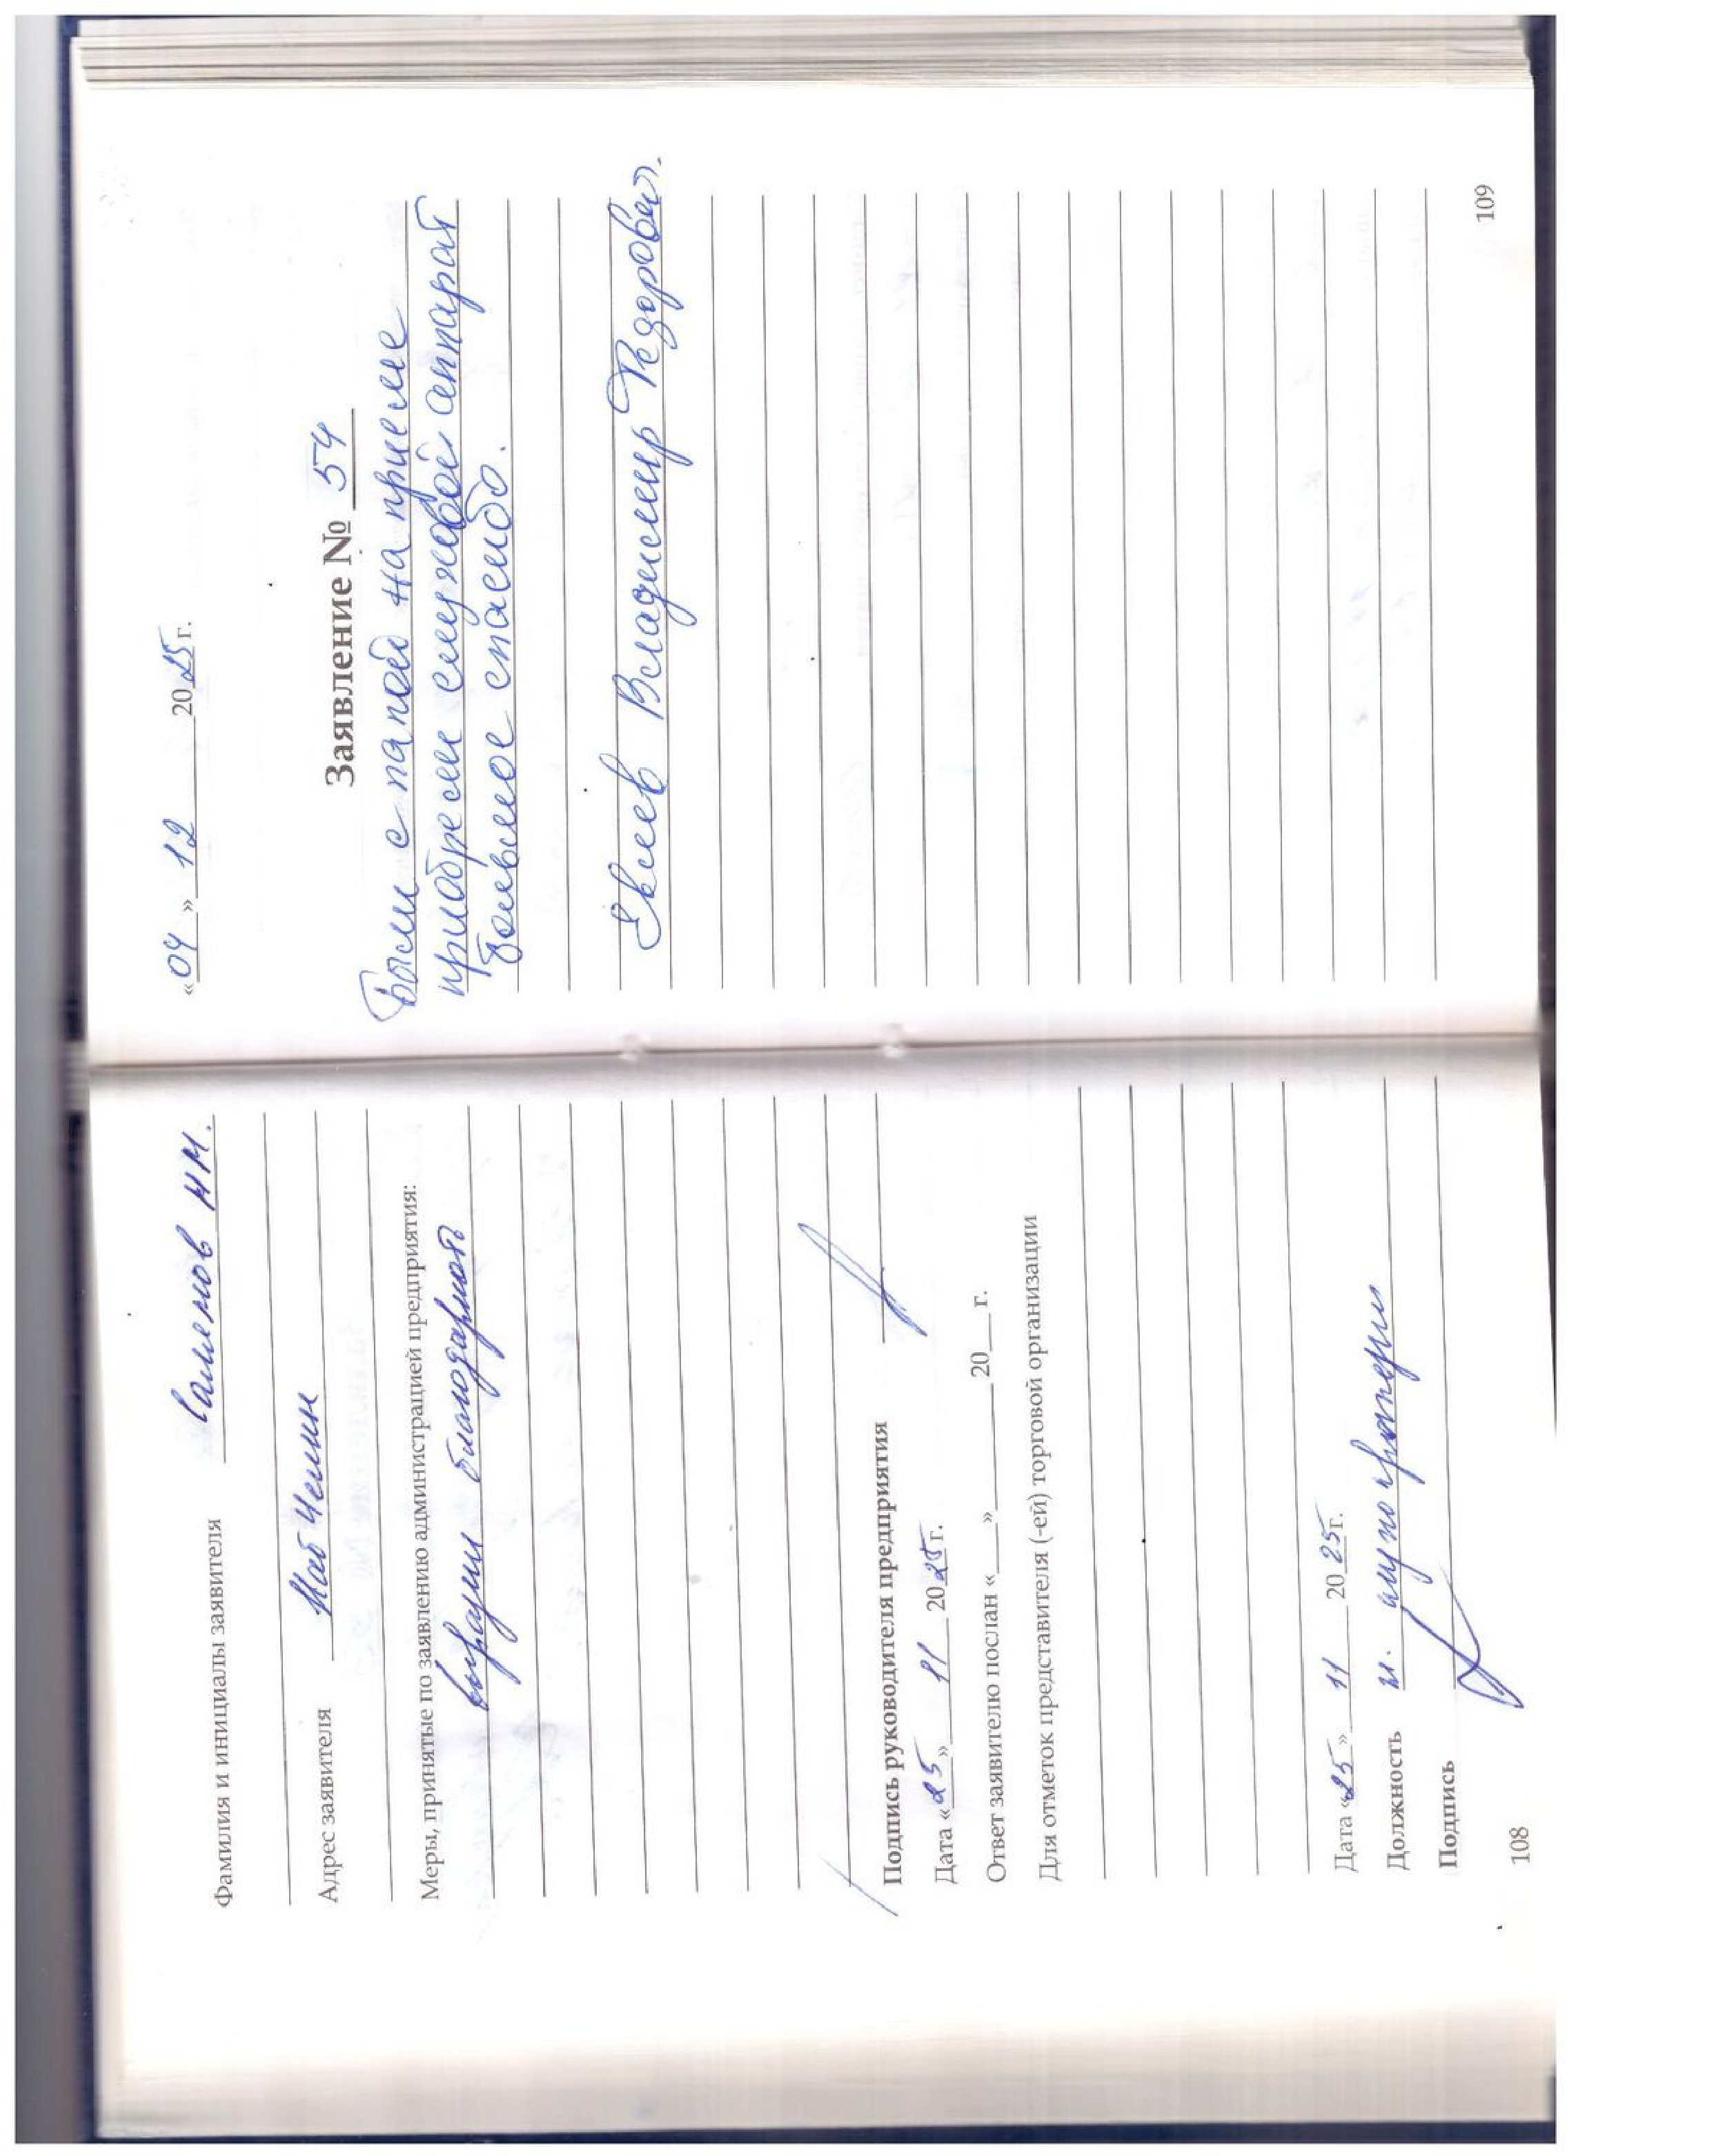 Фамилия и инициалы заявителя Салимов НМ.
Адрес заявителя Наб Челны
Меры, принятые по заявлению администрацией предприятия:
выразили благодарность
Подпись руководителя предприятия
Дата «25» 11 2025г.
Ответ заявителю послан «___»________20___г.
Для отметок представителя (-ей) торговой организации
Дата «25» 11 2025г.
Должность
Подпись
108
«04» 12 2025г.
Заявление № 54
Были с папой на приеме
приобрели слуховой аппарат
большое спасибо.
Евсеев Владимир Федорович.
109